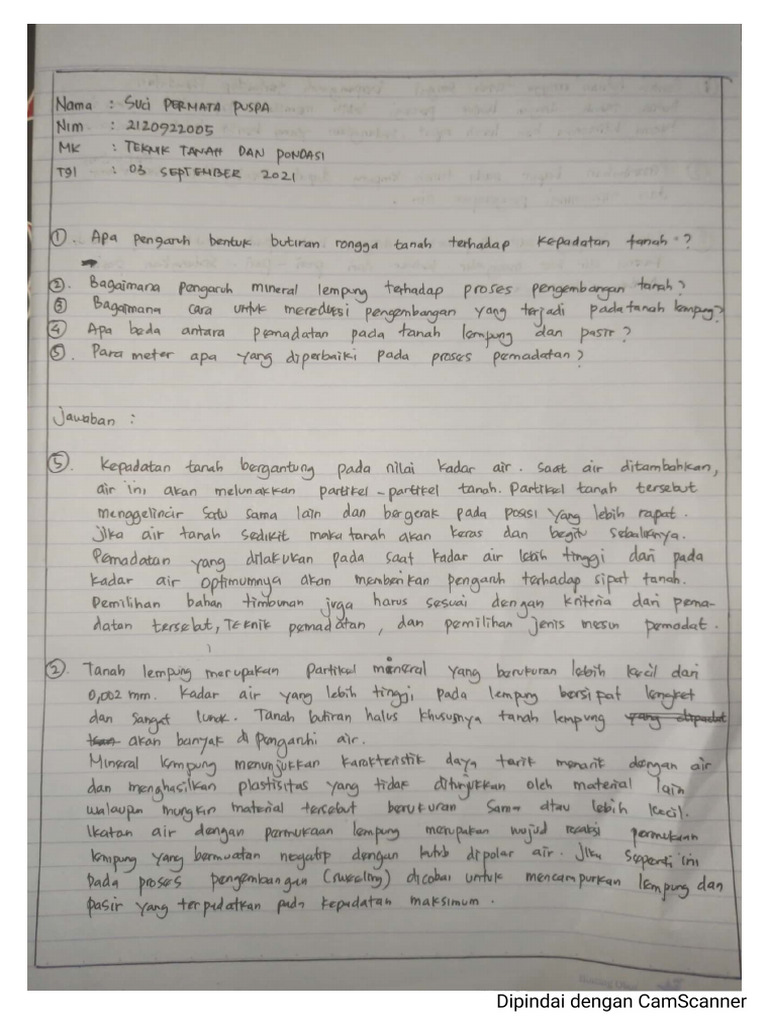 Nama : SUCI PERMATA PUSPA
Nim : 2120922005
MK : TEKNIK TANAH DAN PONDASI
Tgl : 03 SEPTEMBER 2021
①. Apa pengaruh bentuk butiran rongga tanah terhadap kepadatan tanah ?
②. Bagaimana pengaruh mineral lempung terhadap proses pengembangan tanah?
③ Bagaimana cara untuk mereduksi pengembangan yang terjadi pada tanah lempung?
④ Apa beda antara pemadatan pada tanah lempung dan pasir?
⑤. Parameter apa yang diperbaiki pada proses pemadatan?
Jawaban :
⑤. Kepadatan tanah bergantung pada nilai kadar air. Saat air ditambahkan,
air ini akan melunakkan partikel-partikel tanah. Partikel tanah tersebut
menggelincir satu sama lain dan bergerak pada posisi yang lebih rapat.
jika air tanah sedikit maka tanah akan keras dan begitu sebaliknya.
Pemadatan yang dilakukan pada saat kadar air lebih tinggi dari pada
kadar air optimumnya akan memberikan pengaruh terhadap sipat tanah.
Pemilihan bahan timbunan juga harus sesuai dengan kriteria dari pema-
datan tersebut, Teknik pemadatan, dan pemilihan jenis mesin pemadat.
②. Tanah lempung merupakan partikel mineral yang berukuran lebih kecil dari
0,002 mm. Kadar air yang lebih tinggi pada lempung bersipat lengket
dan sangat lunak. Tanah butiran halus khususnya tanah lempung
akan banyak di pengaruhi air.
Mineral lempung menunjukkan karakteristik daya tarik menarik dengan air
dan menghasilkan plastisitas yang tidak ditunjukkan oleh material lain
walaupun mungkin material tersebut berukuran sama atau lebih kecil.
Ikatan air dengan permukaan lempung merupakan wujud reaksi permukaan
lempung yang bermuatan negatip dengan kutub dipolar air. Jika seperti ini
pada proses pengembangan dicobai untuk mencampurkan lempung dan
pasir yang terpadatkan pada kepadatan maksimum.
Dipindai dengan CamScanner